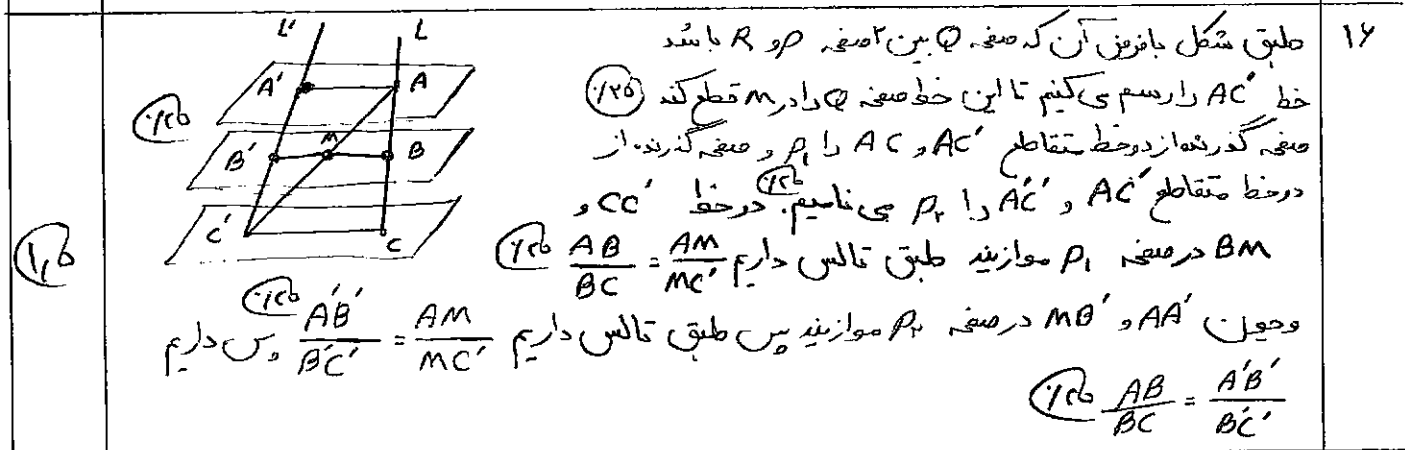 ۱۶
طبق شکل با فرض آن که صفحه Q بین ۲ صفحه P و R باشد
خط AC' را رسم می کنیم تا این خط صفحه Q را در M قطع کند (۰/۲۵)
صفحه گذرنده از دو خط متقاطع AC' و AC را P₁ و صفحه گذرنده از
دو خط متقاطع AC' و A'C' را P₂ می نامیم. (۰/۲۵) دو خط CC' و
BM در صفحه P₁ موازیند طبق تالس داریم AM/MC' = AB/BC (۰/۲۵)
و چون AA' و MB' در صفحه P₂ موازیند پس طبق تالس داریم A'B'/B'C' = AM/MC' (۰/۲۵) پس داریم
AB/BC = A'B'/B'C' (۰/۲۵)
L' L
A' A
(۰/۲۵)
B' M B
C' C
(۱,۵)